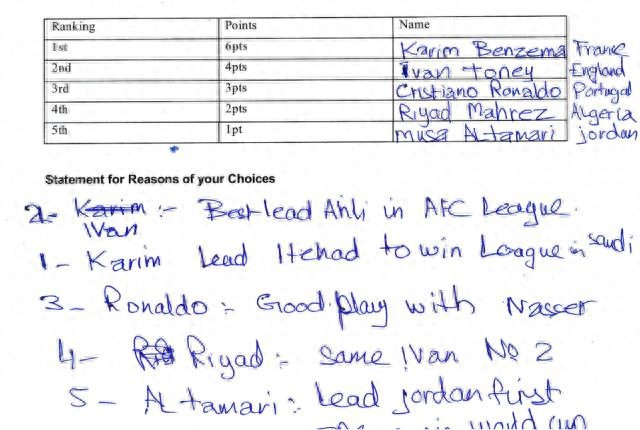 Ranking Points Name
1st 6pts Karim Benzema France
2nd 4pts Ivan toney England
3rd 3pts Cristiano Ronaldo Portugal
4th 2pts Riyad Mahrez Algeria
5th 1pt musa ALtamari jordan
Statement for Reasons of your Choices
2- Karim :- Best lead Ahli in AFC League.
IVan
1- Karim Lead Itehad to win League in saudi
3- Ronaldo :- Good play with Nasser
4- Riyad :- same IVan No 2
5- ALtamari : Lead jordan first
would cup